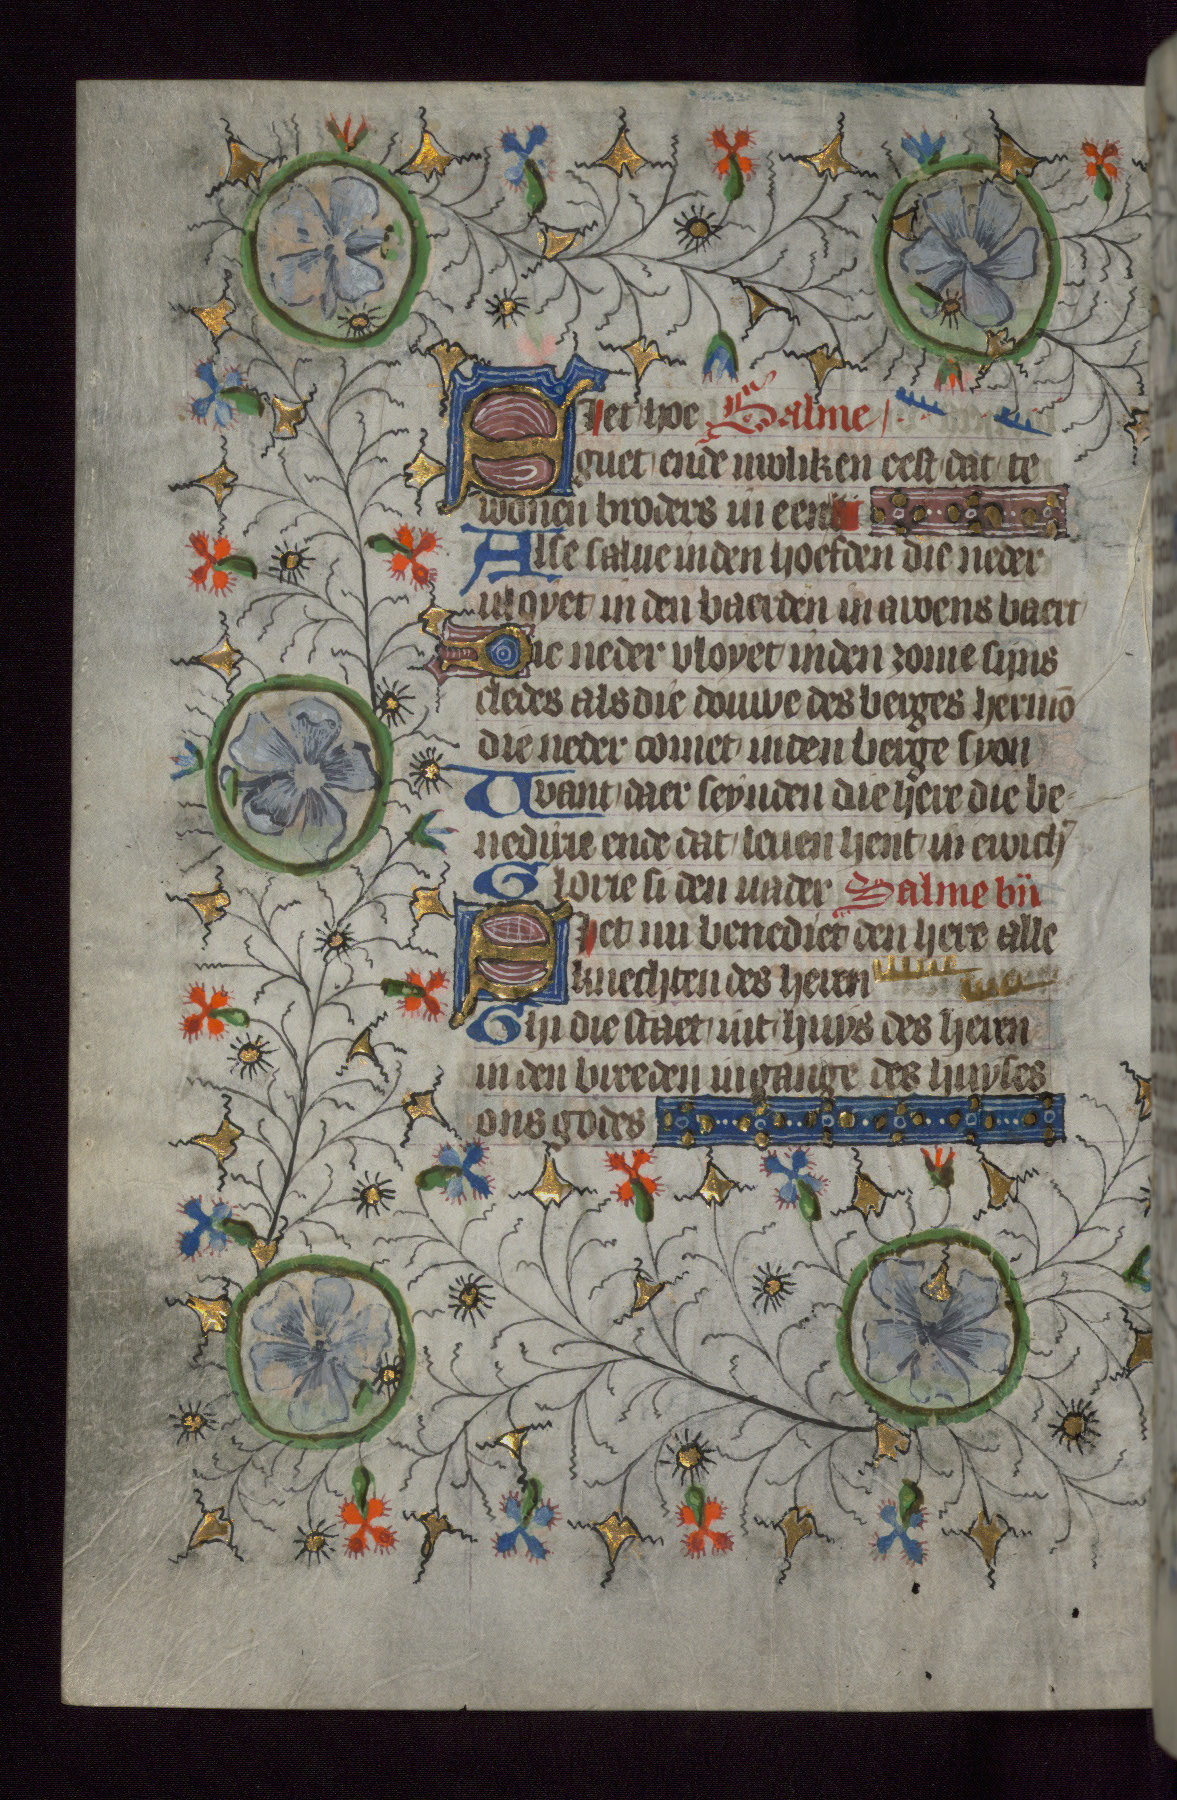 Siet hoe Salme
guet ende wolliken eest dat te
wonen broders in een
Alse salue in den hoefden die neder
vloyet in den baerden in aroens baert
Die neder vloyet in den zome sijns
cledes als die douwe des berges hermō
die neder comet in den berge syon
Want daer seynden die here die be
nedixie ende dat leuen hent in ewich
Glorie si den uader Salme vij
Siet nu benediet den here alle
knechten des heren
Gij die staet int huys des heren
in den breeden ingange des huyses
ons godes